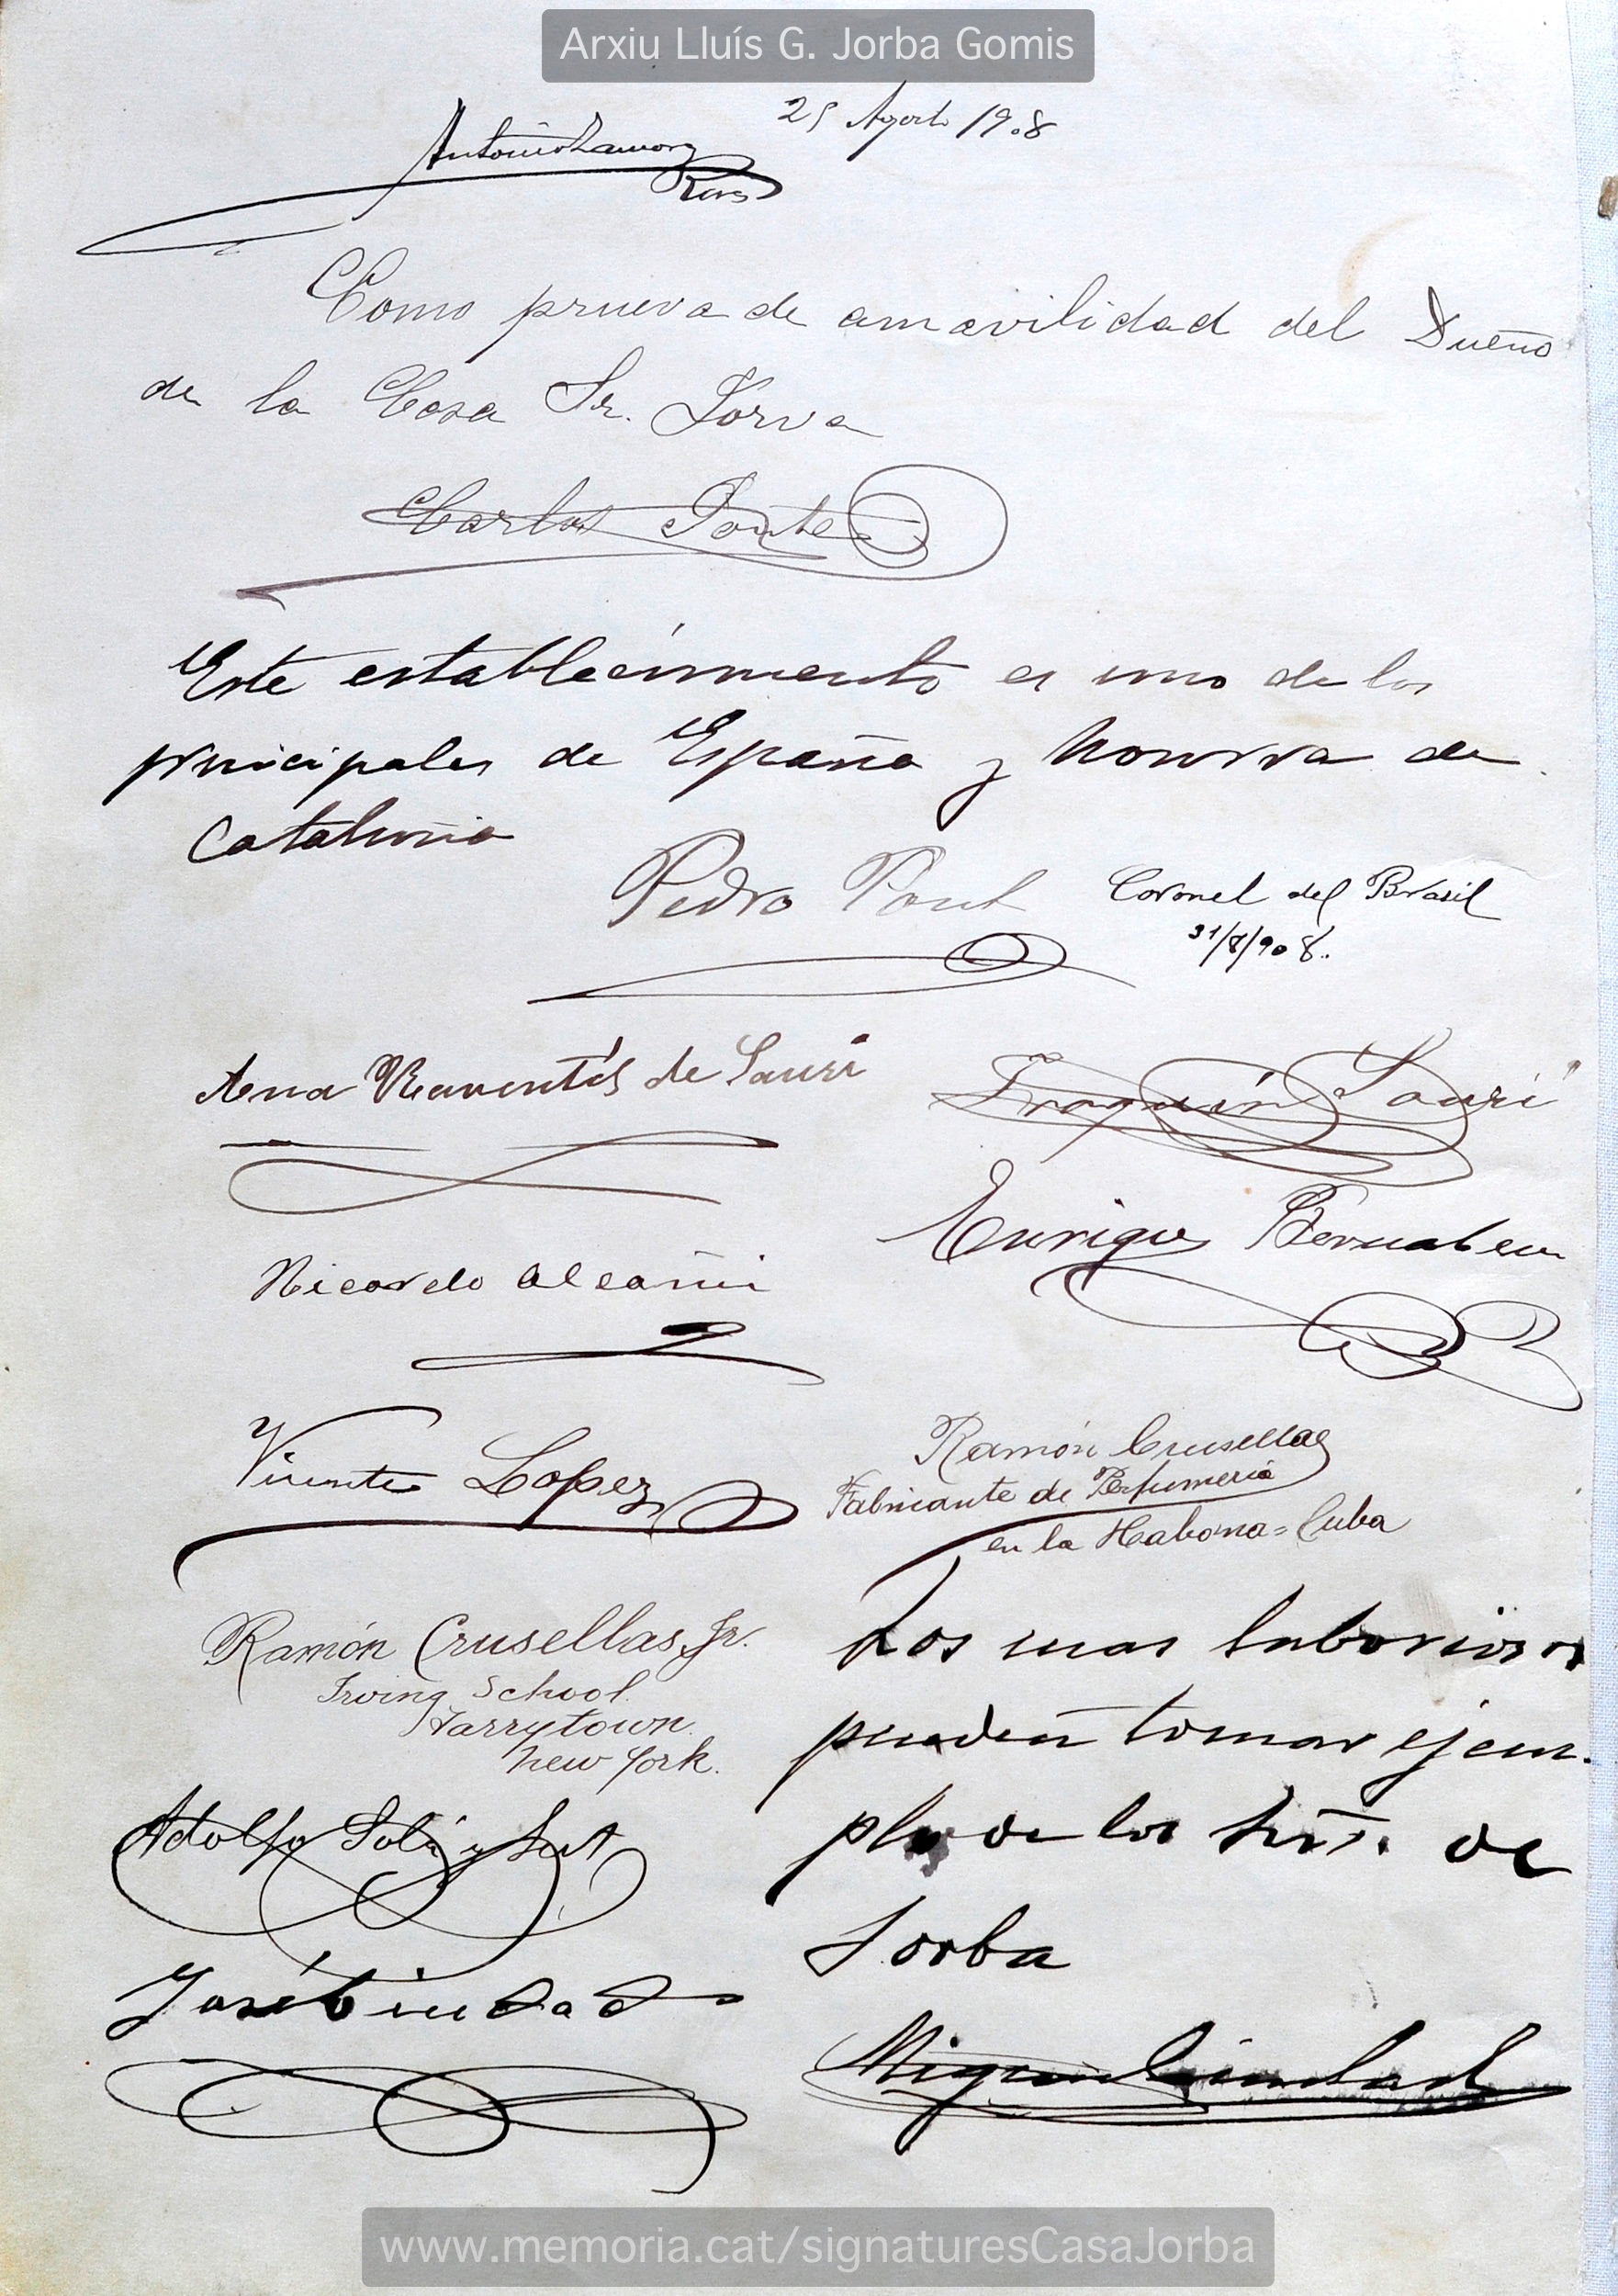 Arxiu Lluís G. Jorba Gomis
25 Agosto 1908
Antonio Zamora
Como prueva de amavilidad del Dueño
de la Casa Sr. Jorva
Carlos Ponte
Este establecimiento es uno de los
principales de España y honrra de
Cataluña
Pedro Pont Coronel del Brasil
31/8/908.
Ana Raventós de Saurí Joaquín Saurí
Enrique Bernabeu
Ricardo Alcañi
Vicente Lopez
Ramón Crusellas
Fabricante de Perfumería
en la Habana=Cuba
Ramón Crusellas Jr.
Irving School.
Tarrytown.
New York.
Los mas laboriosos
pueden tomar ejem-
plo de los Sres. de
Jorba
Adolfo Solá y
José Ciudad
Miguel Ciudad
www.memoria.cat/signaturesCasaJorba